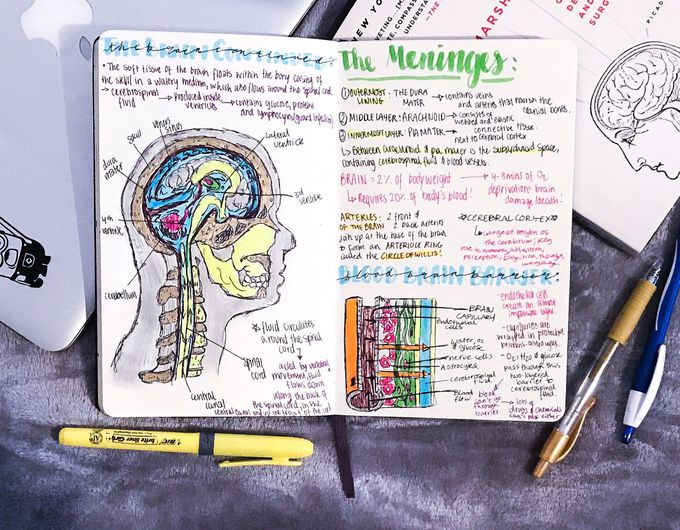 THE BRAIN CONTINUED:
• The soft tissue of the brain floats within the bony casing of
the skull in a watery medium, which also flows around the spinal cord.
→ cerebrospinal fluid → produced inside ventricles → contains glucose, proteins and lymphocytes (guard injection)
skull
venous sinus
lateral ventricle
dura mater
3rd ventricle
4th ventricle
cerebellum
* fluid circulates
around the spinal
cord →
aided by
movement, fluid
flows down
along the back of
the spinal cord, in the
central canal and up the front of the
spinal cord
central canal
The Meninges:
① OUTERMOST LINING: THE DURA MATER → contains veins and arteries that nourish the cranial bones.
② MIDDLE LAYER: ARACHNOID → consists of webbed and elastic connective tissue.
③ INNERMOST LAYER: PIA MATER → next to cerebral cortex
↳ Between arachnoid & pia mater is the subarachnoid space,
containing cerebrospinal fluid & blood vessels.
BRAIN = 2% of bodyweight → 4-8 mins of O₂ deprivation = brain damage/death!
↳ Requires 20% of body's blood!
ARTERIES OF THE BRAIN: 2 front & 2 back arteries
join up at the base of the brain
to form an ARTERIOLE RING
called the CIRCLE OF WILLIS!
*CEREBRAL CORTEX*
↳ largest region of
the cerebrum; key
role in memory, attention,
perception, cognition, thought,
BLOOD BRAIN BARRIER:
BRAIN CAPILLARY
Endothelial cells
water or glucose
nerve cells
Astrocytes
cerebrospinal fluid
Blood flow
blood
can't go
through
barrier
- endothelial cells
create an almost
impermeable layer.
- capillaries are
wrapped in protective
astrocytes.
- O₂, H₂O & glucose
pass through this
two-layered
barrier to
cerebrospinal
fluid.
→ lots of
drugs & chemicals
can't pass either
BIC Brite Liner Grip
NEW YO
MARSH
AND
SURG
PICADO